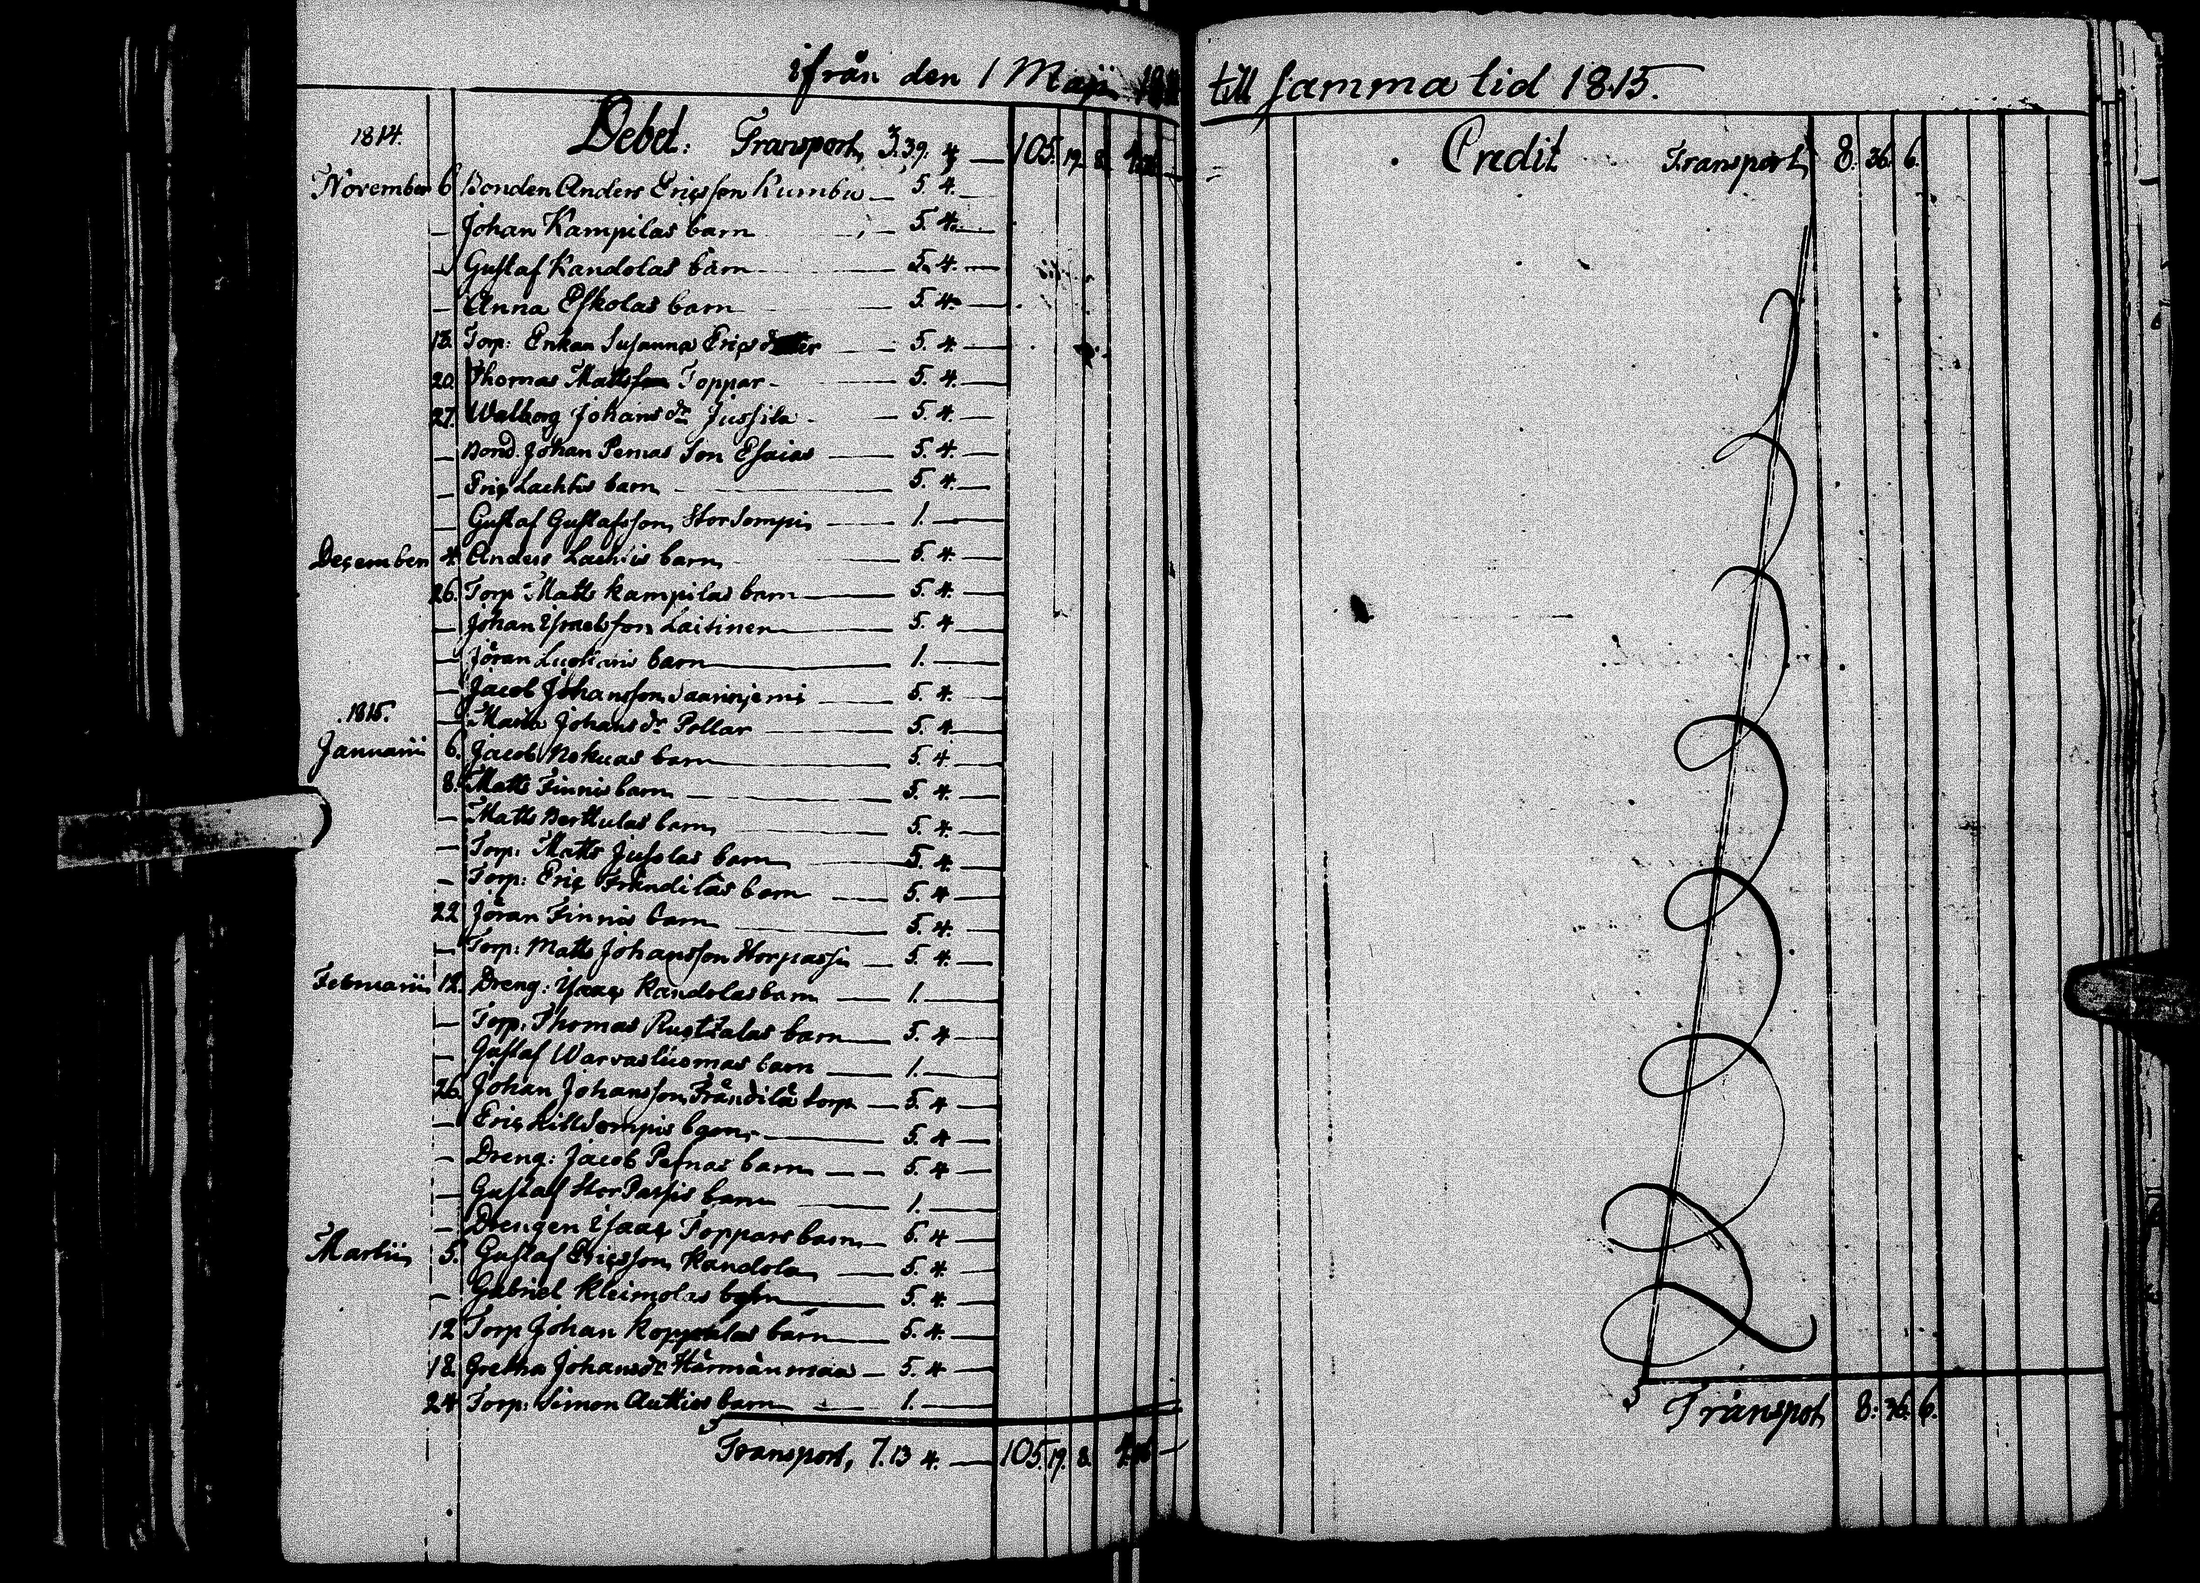 ifrån den 1 Maji 18
1814.
Debet: Transport, 3. 39. 4 — 105. 19. 8.
November 6. Bonden Anders Ericsson Kumbu — 5. 4. —
— Johan Kampilas barn — 5. 4. —
— Gustaf Kandolas barn — 5. 4. —
— Anna Eskolas barn — 5. 4. —
13. Torp: Enkan Susanna Ericsdotter — 5. 4. —
20. Thomas Mattsson Toppar — 5. 4. —
27. Walborg Johansdr Jussila — 5. 4. —
— Bond. Johan Pernas Son Esaias — 5. 4. —
— Eric Lachtis barn — 5. 4. —
— Gustaf Gustafsson Stor Sompi — 1. —
December 4. Anders Lachtis barn — 5. 4. —
26. Torp Matts Kampilas barn — 5. 4. —
— Johan Israelsson Laitinen — 5. 4 —
— Jöran barn — 1. —
— Jacob Johansson Saarinjemi — 5. 4 —
1815.
— Maria Johansdr Pollar — 5. 4. —
Januarii 6. Jacob Nokuas barn — 5. 4 —
8. Matts Finnis barn — 5. 4. —
— Matts Berttulas barn — 5. 4. —
— Torp: Matts Jusolas barn — 5. 4 —
— Torp: Eric Frändilås barn — 5. 4 —
22 Jöran Finnis barn — 5. 4. —
— Torp: Matts Johansson Storpassi — 5. 4. —
Februarii 12. Dreng: Isaac Kandolas barn — 1. —
— Torp. Thomas Ructzalas barn — 5. 4 —
— Gustaf Warvasluomas barn — 1. —
26. Johan Johansson Frändilä torp — 5. 4 —
— Eric Lillsompis barn — 5. 4 —
— Dreng: Jacob Pernas barn — 5. 4 —
— Gustaf Stor Passis barn — 1. —
— Drengen Isaac Toppars barn — 5. 4 —
Martii 5. Gustaf Ericsson Kandola — 5. 4. —
— Gabriel Kleimolas barn — 5. 4. —
12 Torp Johan Koppelas barn — 5. 4. —
18. Gretha Johansdr Härmänmaa — 5. 4 —
24 Torp: Simon Autties barn — 1. —
Transport, 7. 13 4. — 105. 19. 8.
till samma tid 1815.
Credit Transport 8. 36. 6.
Transpot 8. 36. 6.